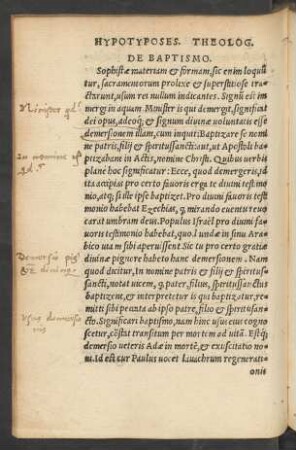 HYPOTYPOSES. THEOLOG.
DE BAPTISMO.
Sophistæ materiam & formam, sic enim loquũ
tur, sacramentorum prolixe & superstitiose tra
ctarunt, usum rei nullum indicantes. Signũ est im
mergi in aquam. Minister is qui demergit, significat
dei opus, adeoq; & signum diuinæ voluntatis esse
demersionem illam, cum inquit: Baptizare se nomi
ne patris, filij & spiritussancti: aut, ut Apostoli ba
ptizabant in Actis, nomine Christi. Quibus verbis
plane hoc significatur: Ecce, quod demergeris, id
ita accipias pro certo fauoris erga te diuini testimo
nio, atq; si ille ipse baptizet. Pro diuini fauoris testi
monio habebat Ezechias, q̃ mirando euentu reuo
carat umbram deus. Populus Israel pro diuini fauo
ris testimonio habebat, quod undæ in sinu Arabico
Arabico uiam sibi aperuissent Sic tu pro certo gratiæ
diuinæ pignore habeto hanc demersionem. Nam
quod dicitur, In nomine patris & filij & spiritus-
sancti, notat uicem, q̃ pater, filius, spiritussanctus
baptizent, & interpretetur is qui baptizatur, re-
mitti sibi peccata ab ipso patre, filio & spiritusan-
cto. Significari baptismo, nam hinc usus eius cogno
scetur, cõstat transitum per mortem ad uitã. Estq́;
demersio ueteris Adæ in mortẽ, & exuscitatio no-
ui. Id est cur Paulus uocet lauachrum regenerati-
onis
Minister qd
In nomine
Demersio pig
Usus demersio
nis